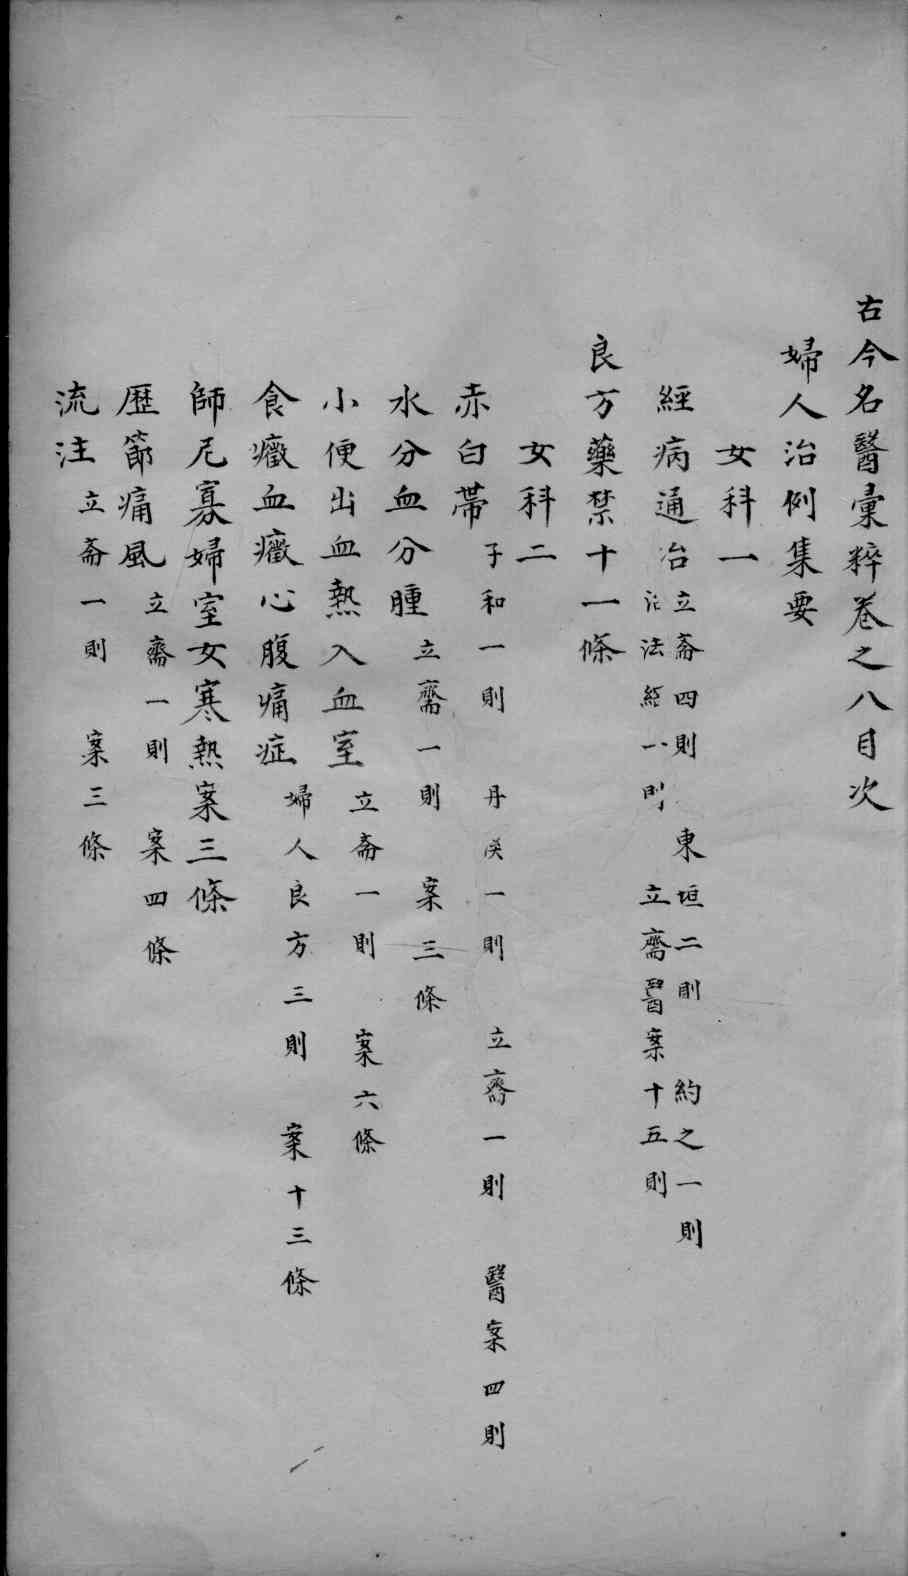 古今名醫彙粹卷之八目次
婦人治例集要
女科一
經病通治 立齋四則 東垣二則 約之一則
治法總一則 立齋醫案十五則
良方藥禁十一條
女科二
赤白帶 子和一則 丹溪一則 立齋一則 醫案四則
水分血分腫 立齋一則 案三條
小便出血熱入血室 立斋一則 案六條
食癥血癥心腹痛症 婦人良方三則 案十三條
師尼寡婦室女寒熱案三條
歷節痛風 立齋一則 案四條
流注 立斋一則 案三條